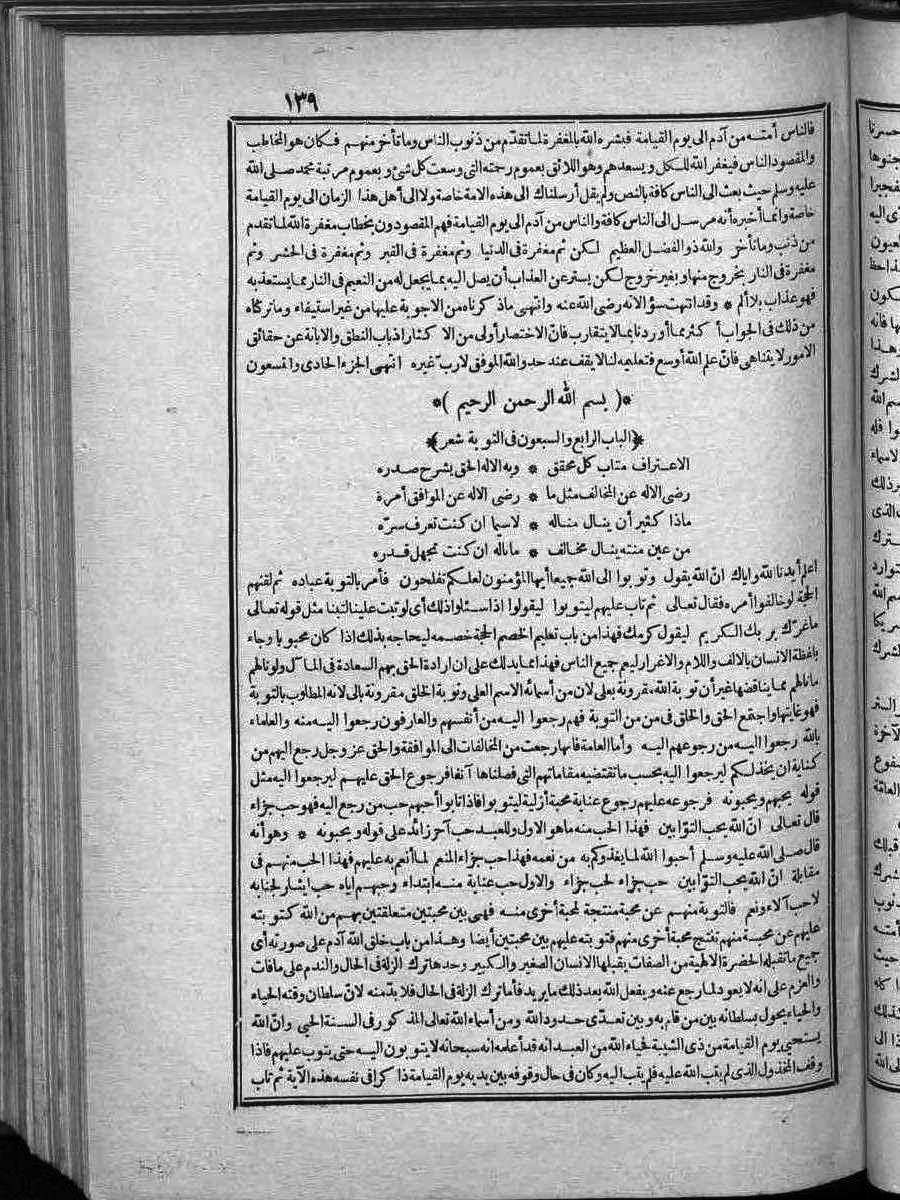 ١٣٩
فالناس أمته من آدم الى يوم القيامة فبشره الله بالمغفرة لما تقدّم من ذنوب الناس وما تأخر منهم فكان هو المخاطب
والمقصود الناس فيغفر الله للكل ويسعدهم وهو اللائق بعموم رحمته التى وسعت كل شئ وبعموم مرتبة محمد صلى الله
عليه وسلم حيث بعث الى الناس كافة بالنص ولم يقل أرسلناك الى هذه الامة خاصة ولا الى أهل هذا الزمان الى يوم القيامة
خاصة وانما أخبره أنه مرسل الى الناس كافة والناس من آدم الى يوم القيامة فهم المقصودون بخطاب مغفرة الله لما تقدم
من ذنب وما تأخر والله ذو الفضل العظيم لكن ثم مغفرة فى الدنيا وثم مغفرة فى القبر وثم مغفرة فى الحشر وثم
مغفرة فى النار بخروج منها وبغير خروج لكن يستر عن العذاب أن يصل اليه بما يجعل له من النعيم فى النار مما يستعذبه
فهو عذاب بلا ألم * وقد انتهت سؤالاته رضى الله عنه وانتهى ما ذكرناه من الاجوبة عليها من غير استيفاء وما تركناه
من ذلك فى الجواب أكثر مما أوردناه بما لا يتقارب فانّ الاختصار أولى من الاكثار اذ باب النطق والابانة عن حقائق
الامور لا يتناهى فانّ علم الله أوسع فتعليمه لنا لا يقف عند حد والله الموفق لا ربّ غيره انتهى الجزء الحادى والتسعون
*( بسم الله الرحمن الرحيم )*
*(الباب الرابع والسبعون فى التوبة شعر)*
الاعتراف متاب كل محقق * وبه الاله الحق يشرح صدره
رضى الاله عن المخالف مثل ما * رضى الاله عن الموافق أمره
ماذا كثير أن ينال مناله * لاسيما ان كنت تعرف سرّه
من عين منته ينال مخالف * ما ناله ان كنت تجهل قدره
اعلم أيدنا الله واياك انّ الله يقول وتوبوا الى الله جميعا أيها المؤمنون لعلكم تفلحون فأمر بالتوبة عباده ثم لقنهم
الحجة لو خالفوا أمره فقال تعالى ثم تاب عليهم ليتوبوا ليقولوا اذا سئلوا ذلك أى لو تبت علينا لتبنا مثل قوله تعالى
ما غرّك بربك الكريم ليقول كرمك فهذا من باب تعليم الخصم الحجة خصمه ليحاجه بذلك اذا كان محبوبا وجاء
بلفظة الانسان بالالف واللام والاغرار ليعم جميع الناس فهذا مما يدلك على ان ارادة الحق بهم السعادة فى المآل ولو نالهم
ما نالهم مما يناقضها غير أن توبة الله مقرونة بعلى لان من أسمائه الاسم العلى وتوبة الخلق مقرونة بالى لانه المطلوب بالتوبة
فهو غايتها واجتمع الحق والخلق فى من من التوبة فهم رجعوا اليه من أنفسهم والعارفون رجعوا اليه منه والعلماء
بالله رجعوا اليه من رجوعهم اليه وأما العامة فانها رجعت من المخالفات الى الموافقة والحق عز وجل رجع اليهم من
كناية ان يخذلكم ليرجعوا اليه بحسب ما تقتضيه مقاماتهم التى فصلناها آنفا فرجوع الحق عليهم ليرجعوا اليه مثل
قوله يحبهم ويحبونه فرجوعه عليهم رجوع عناية محبة أزلية ليتوبوا فاذا تابوا أحبهم حب من رجع اليه فهو حب جزاء
قال تعالى انّ الله يحب التوّابين فهذا الحب منه ما هو الاول وللعبد حب آخر زائد على قوله ويحبونه * وهو أنه
قال صلى الله عليه وسلم أحبوا الله لما يغذوكم به من نعمه فهذا حب جزاء المنعم لما أنعم به عليهم فهذا الحب منهم فى
مقابلة انّ الله يحب التوّابين حب جزاء لحب جزاء والاول حب عناية منه ابتداء وحبهم اياه حب ايثار لجنابه
لا حب آلاء ونعم فالتوبة منهم عن محبة منتجة لمحبة أخرى منه فهى بين محبتين متعلقتين بهم من الله كتوبته
عليهم عن محبة منهم تنتج محبة أخرى منهم فتوبته عليهم بين محبتين أيضا وهذا من باب خلق الله آدم على صورته أى
جميع ما تقبله الحضرة الالهية من الصفات يقبلها الانسان الصغير والكبير وحدها ترك الزلة فى الحال والندم على ما فات
والعزم على انه لا يعود لما رجع عنه ويفعل الله بعد ذلك ما يريد فأما ترك الزلة فى الحال فلا بدّ منه لانّ سلطان وقته الحياء
والحياء يحول بسلطانه بين من قام به وبين تعدّى حدود الله ومن أسماء الله تعالى المذكور فى السنة الحيى وانّ الله
يستحيى يوم القيامة من ذى الشيبة فحياء الله من العبد انه قد أعلمه انه سبحانه لا يتوبون اليه حتى يتوب عليهم فاذا
وقف المخذول الذى لم يتب الله عليه فلم يتب اليه وكان فى حال وقوفه بين يديه يوم القيامة ذاكرا فى نفسه هذه الآية ثم تاب